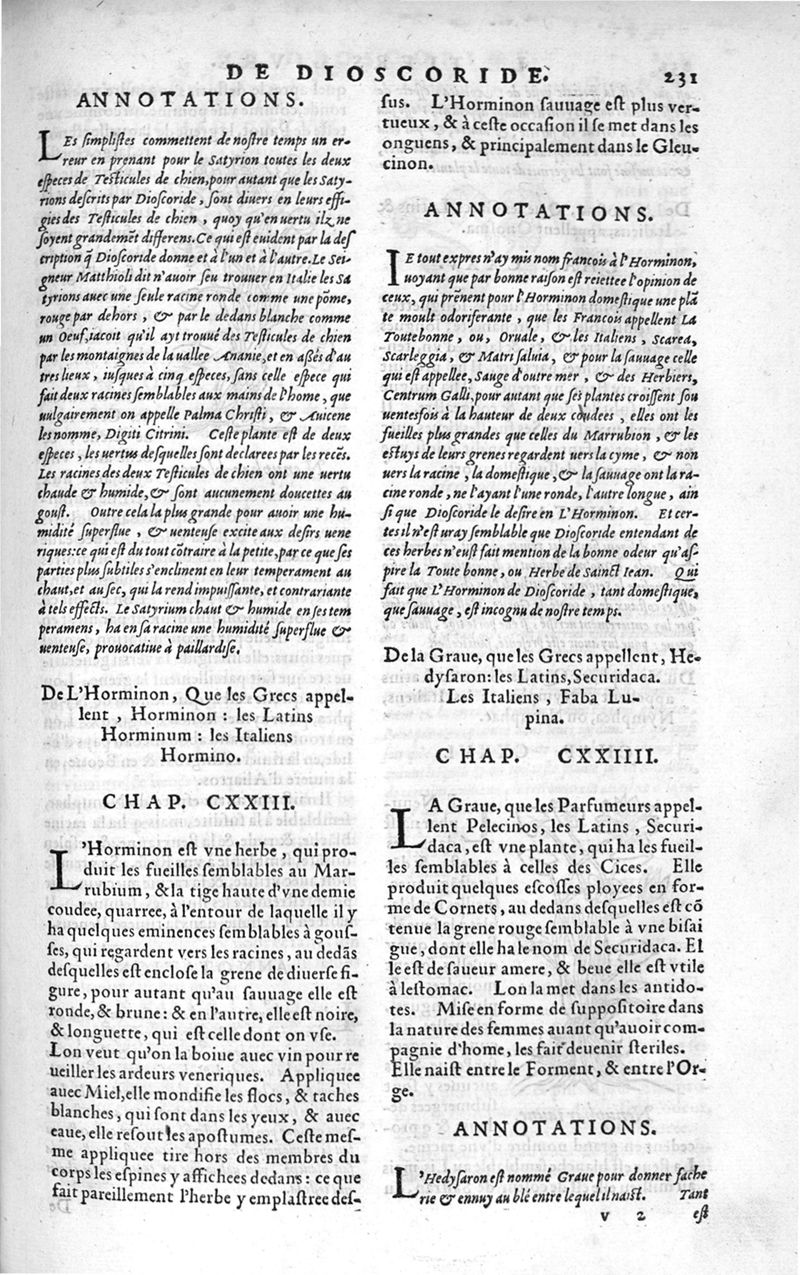 DE DIOSCORIDE. 231
ANNOTATIONS.
LEs simplistes commettent de nostre temps un er-
reur en prenant pour le Satyrion toutes les deux
especes de Testicules de chien, pour autant que les Saty-
rions descrits par Dioscoride, sont divers en leurs effi-
gies des Testicules de chien, quoy qu'en uertu ilz ne
soyent grandemēt differens. Ce qui est euident par la des
cription q̃ Dioscoride donne et à l'un et à l'autre. Le Sei-
gneur Matthioli dit n'auoir seu trouuer en Italie les Sa
tyrions auec une seule racine ronde comme une pōme,
rouge par dehors, & par le dedans blanche comme
un Oeuf, iacoit qu'il ayt trouué des Testicules de chien
par les montaignes de la uallee Ananie, et en assés d'au
tres lieux, iusques à cinq especes, sans celle espece qui
fait deux racines semblables aux mains de l'home, que
uulgairement on appelle Palma Christi, & Auicene
les nomme, Digiti Citrini. Ceste plante est de deux
especes, les uertus desquelles sont declarees par les recēs.
Les racines des deux Testicules de chien ont une uertu
chaude & humide, & sont aucunement doucettes au
goust. Outre cela la plus grande pour auoir une hu-
midité superflue, & uenteuse excite aux desirs uene
riques: ce qui est du tout cōtraire à la petite, par ce que ses
parties plus subtiles s'enclinent en leur temperament au
chaut, et au sec, qui la rend impuissante, et contrariante
à tels effects. Le Satyrium chaut & humide en ses tem
peramens, ha en sa racine une humidité superflue &
uenteuse, prouocatiue à paillardise.
De L'Horminon, Que les Grecs appel-
lent, Horminon: les Latins
Horminum: les Italiens
Hormino.
CHAP. CXXIII.
L'Horminon est vne herbe, qui pro-
duit les fueilles semblables au Mar-
rubium, & la tige haute d'vne demie
coudee, quarree, à l'entour de laquelle il y
ha quelques eminences semblables à gous-
ses, qui regardent vers les racines, au dedās
desquelles est enclose la grene de diuerse fi-
gure, pour autant qu'au sauuage elle est
ronde, & brune: & en l'autre, elle est noire,
& longuette, qui est celle dont on vse.
Lon veut qu'on la boiue auec vin pour re
ueiller les ardeurs veneriques. Appliquee
auec Miel, elle mondifie les flocs, & taches
blanches, qui sont dans les yeux, & auec
eaue, elle resout les apostumes. Ceste mes-
me appliquee tire hors des membres du
corps les espines y affichees dedans: ce que
fait pareillement l'herbe y emplastree des-
sus. L'Horminon sauuage est plus ver-
tueux, & à ceste occasion il se met dans les
onguens, & principalement dans le Gleu-
cinon.
ANNOTATIONS.
IE tout expres n'ay mis nom francois à l'Horminon,
uoyant que par bonne raison est reiettee l'opinion de
ceux, qui prēnent pour l'Horminon domestique une plā
te moult odoriferante, que les Francois appellent La
Toutebonne, ou, Oruale, & les Italiens, Scarea,
Scarleggia, & Matri saluia, & pour la sauuage celle
qui est appellee, Sauge d'outre mer, & des Herbiers,
Centrum Galli, pour autant que ses plantes croissent sou
uentesfois à la hauteur de deux coudees, elles ont les
fueilles plus grandes que celles du Marrubion, & les
estuys de leurs grenes regardent uers la cyme, & non
uers la racine, la domestique, & la sauuage ont la ra-
cine ronde, ne l'ayant l'une ronde, l'autre longue, ain
si que Dioscoride le desire en L'Horminon. Et cer-
tes il n'est uray semblable que Dioscoride entendant de
ces herbes n'eust fait mention de la bonne odeur qu'as-
pire la Toute bonne, ou Herbe de Sainct Iean. Qui
fait que L'Horminon de Dioscoride, tant domestique,
que sauuage, est incognu de nostre temps.
De la Graue, que les Grecs appellent, He-
dysaron: les Latins, Securidaca.
Les Italiens, Faba Lu-
pina.
CHAP. CXXIIII.
LA Graue, que les Parfumeurs appel-
lent Pelecinos, les Latins, Securi-
daca, est vne plante, qui ha les fueil-
les semblables à celles des Cices. Elle
produit quelques escosses ployees en for-
me de Cornets, au dedans desquelles est cō
tenue la grene rouge semblable à vne bisai
gue, dont elle ha le nom de Securidaca. El
le est de saueur amere, & beue elle est vtile
à lestomac. Lon la met dans les antido-
tes. Mise en forme de suppositoire dans
la nature des femmes auant qu'auoir com-
pagnie d'home, les fait deuenir steriles.
Elle naist entre le Forment, & entre l'Or-
ge.
ANNOTATIONS.
L'Hedysaron est nommé Graue pour donner fache
rie & ennuy au blé entre lequel il naist. Tant
v 2 est